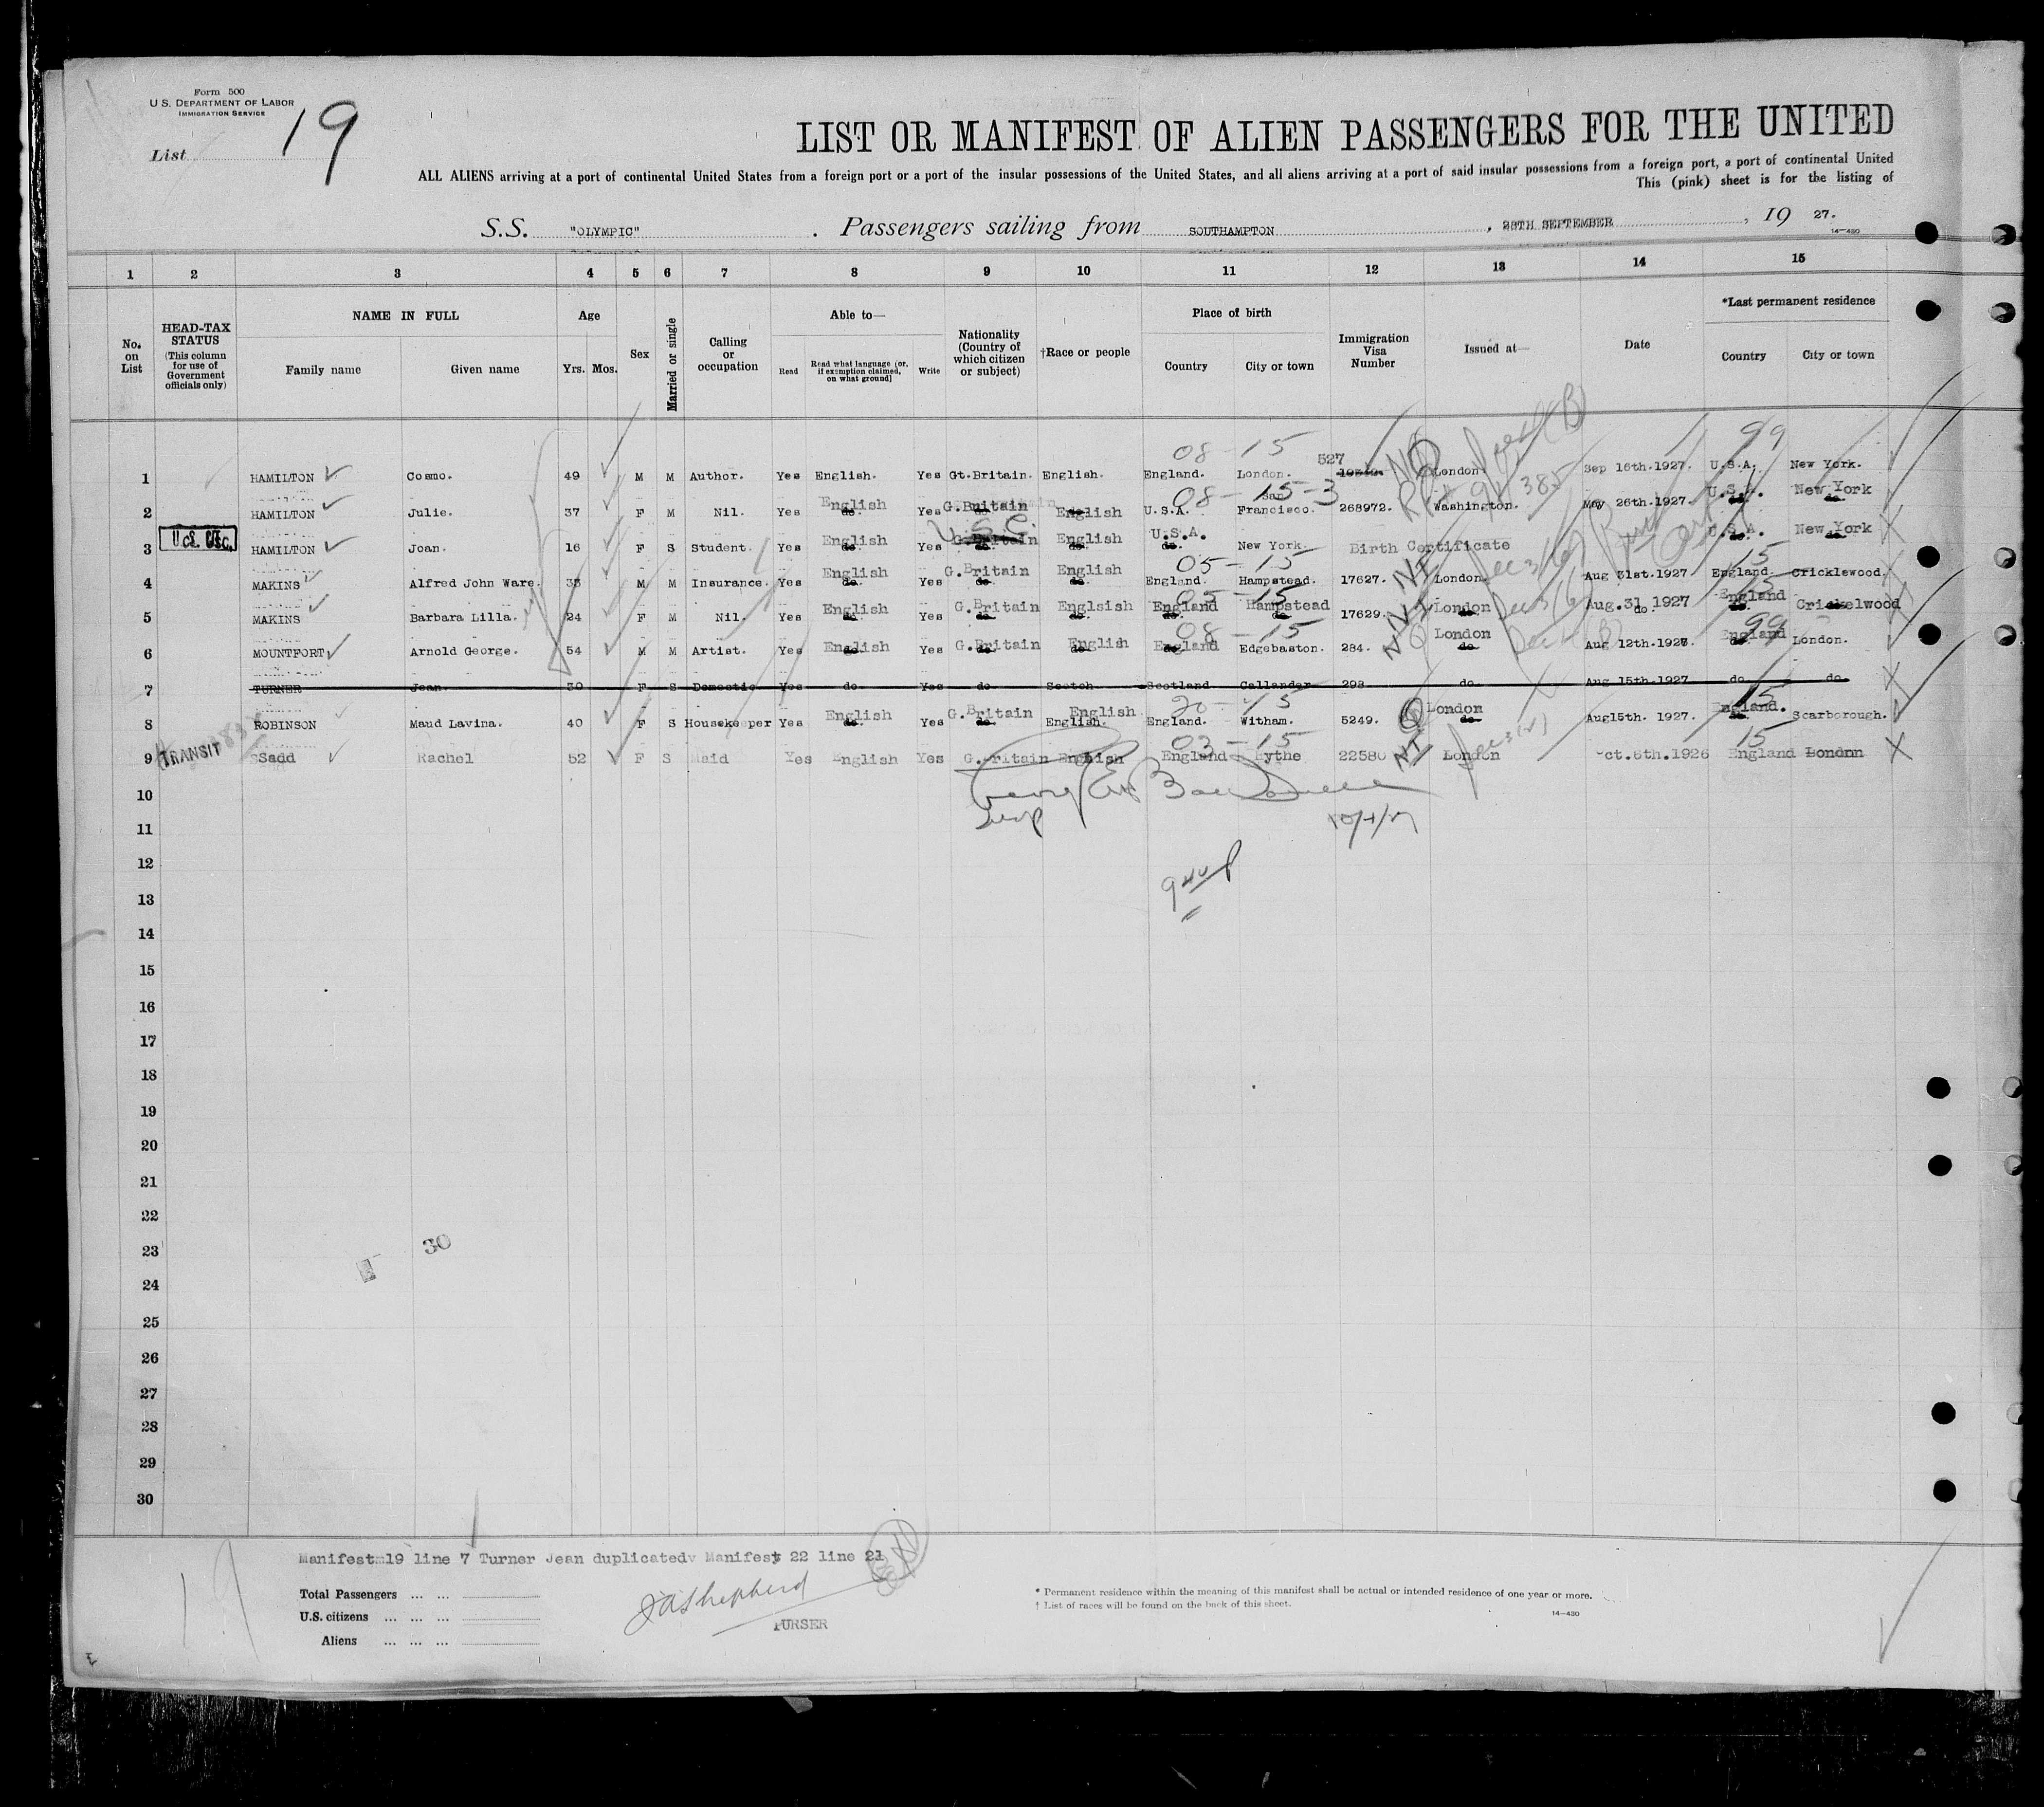 Form 500
U.S. DEPARTMENT OF LABOR
IMMIGRATION SERVICE
List 19
LIST OR MANIFEST OF ALIEN PASSENGERS FOR THE UNITED
ALL ALIENS arriving at a port of continental United States from a foreign port or a port of the insular possessions of the United States, and all aliens arriving at a port of said insular possessions from a foreign port, a port of continental United
This (pink) sheet is for the listing of
S.S. "OLYMPIC". Passengers sailing from SOUTHAMPTON, 28TH SEPTEMBER, 19 27.
14—430
1 2 3 4 5 6 7 8 9 10 11 12 13 14 15
No. on List
HEAD-TAX STATUS (This column for use of Government officials only)
NAME IN FULL
Family name Given name
Age
Yrs. Mos.
Sex
Married or single
Calling or occupation
Able to—
Read Read what language [or, if exemption claimed, on what ground] Write
Nationality (Country of which citizen or subject)
†Race or people
Place of birth
Country City or town
Immigration Visa Number
Issued at—
Date
*Last permanent residence
Country City or town
08-15 99
1 HAMILTON Cosmo. 49 M M Author. Yes English. Yes Gt.Britain. English. England. London. 527 London Sep 16th.1927. U.S.A. New York.
08-15-3
2 HAMILTON Julie. 37 F M Nil. Yes English do. Yes G.Britain do. English U.S.A. San Francisco. 268972. Washington. May 26th.1927. U.S.A. do. New York do.
U.S.C.
3 HAMILTON Joan. 16 F S Student. Yes English do. Yes G.Britain do. English do. U.S.A. do. New York. Birth Certificate U.S.A. do. New York do.
05-15 15
4 MAKINS Alfred John Ware. 33 M M Insurance. Yes English do. Yes G.Britain do. English do. England. Hampstead. 17627. London. Aug 31st.1927 England. Cricklewood.
05-15 15
5 MAKINS Barbara Lilla. 24 F M Nil. Yes English do. Yes G.Britain do. Englsish do. England do. Hampstead do 17629. London do Aug.31 do. 1927 England do. Crickelwood do
08-15 99
6 MOUNTFORT Arnold George. 54 M M Artist. Yes English do. Yes G.Britain do. English do. England Edgebaston. 284. London do Aug 12th.1927. England do. London.
7 TURNER Jean. 30 F S Domestic Yes do Yes do Scotch Scotland Callander 293 do. Aug 15th.1927 do do
20-15 15
8 ROBINSON Maud Lavina. 40 F S Housekeeper Yes English do. Yes G.Britain do. English English. England. Witham. 5249. London do. Aug15th. 1927. England. do. Scarborough.
03-15 15
TRANSIT
9 Sadd Rachel 52 F S Maid Yes English Yes G.Britain English England Hythe 22580 London Oct.6th.1926 England Londnn
10
11
12
13
14
15
16
17
18
19
20
21
22
23
30
24
25
26
27
28
29
30
Manifest 19 line 7 Turner Jean duplicated Manifest 22 line 21
Total Passengers ... ...
U.S. citizens ... ... ...
Aliens ... ... ...
JAShepherd
PURSER
* Permanent residence within the meaning of this manifest shall be actual or intended residence of one year or more.
† List of races will be found on the back of this sheet.
14—430
19